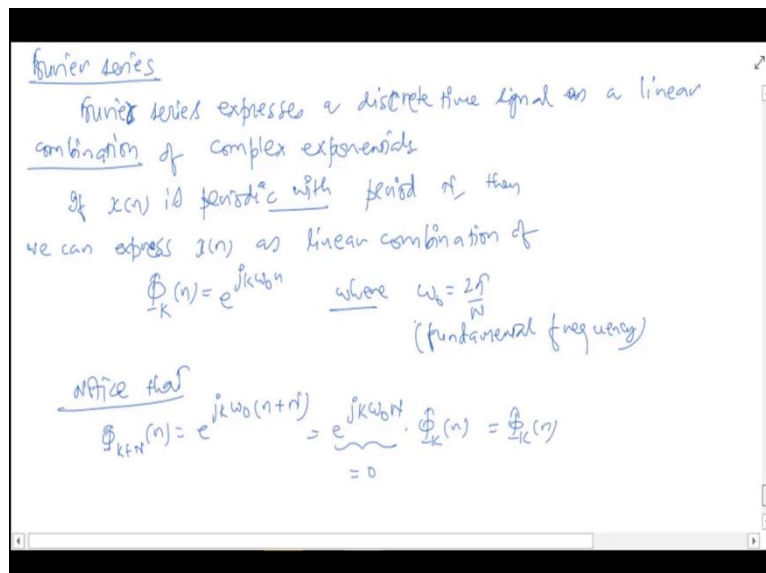 Fourier series
Fourier series expresses a discrete time signal as a linear
combination of complex exponentials
If x(n) is periodic with period N, then
we can express x(n) as linear combination of
Φ_K(n) = e^{jkω₀n} where ω₀ = 2π/N
(fundamental frequency)
Notice that
Φ_{K+N}(n) = e^{jkω₀(n+N)} = e^{jkω₀N} · Φ_K(n) = Φ_K(n)
= 0